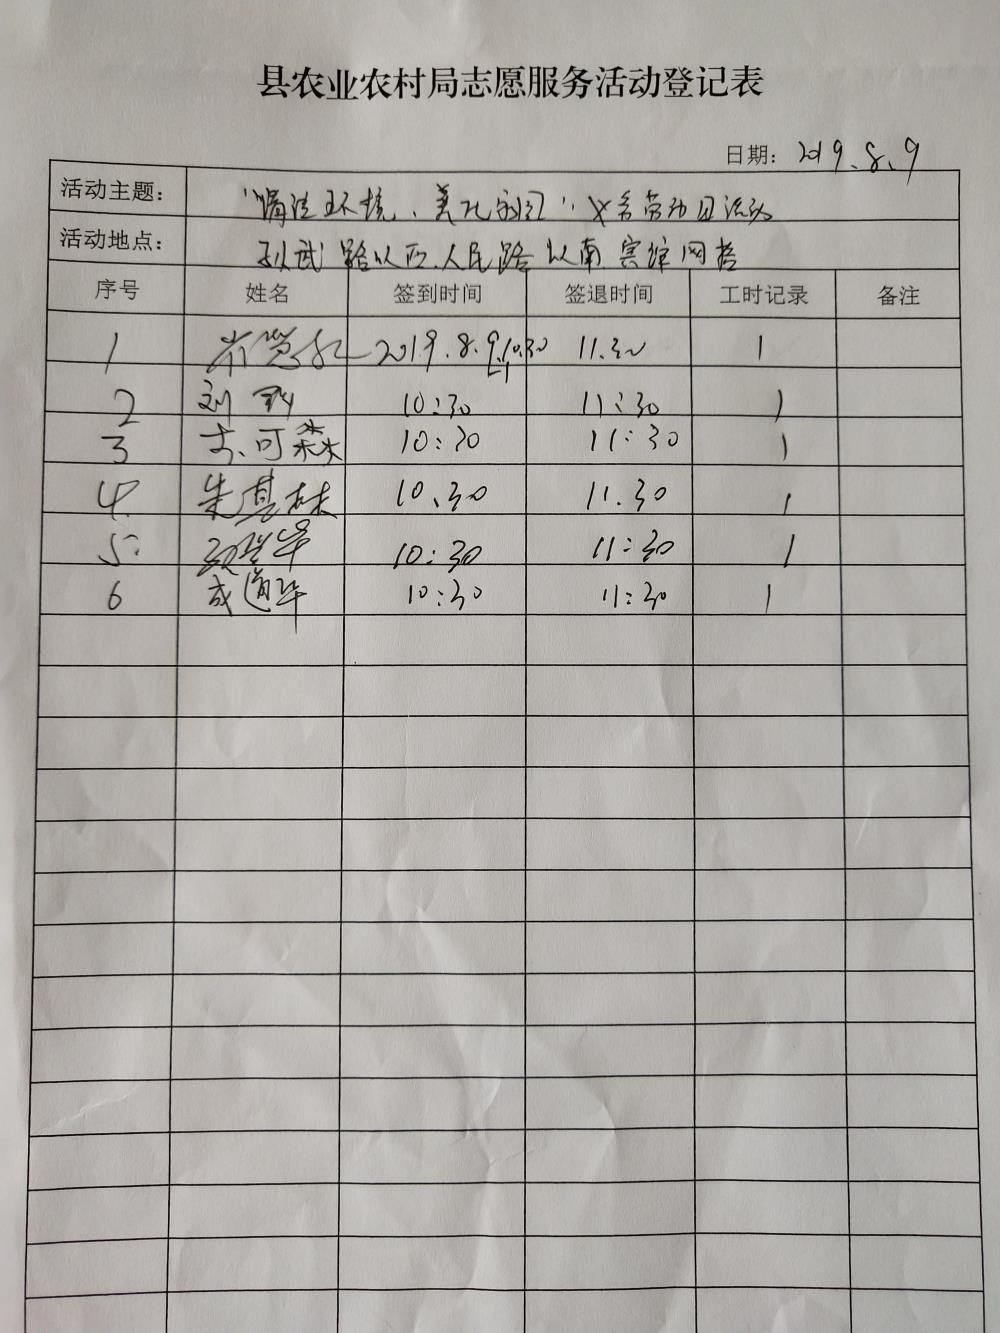 县农业农村局志愿服务活动登记表
日期: 2019.8.9
活动主题: "清洁环境、美化家园" 义务劳动日活动
活动地点: 孙武路以西、人民路以南 宾馆网格
序号 姓名 签到时间 签退时间 工时记录 备注
1 2019.8.9 10.30 11.30 1
2 刘 10:30 11:30 1
3 可森 10:30 11:30 1
4. 朱其林 10.30 11.30 1
5. 10:30 11:30 1
6 成道华 10:30 11:30 1